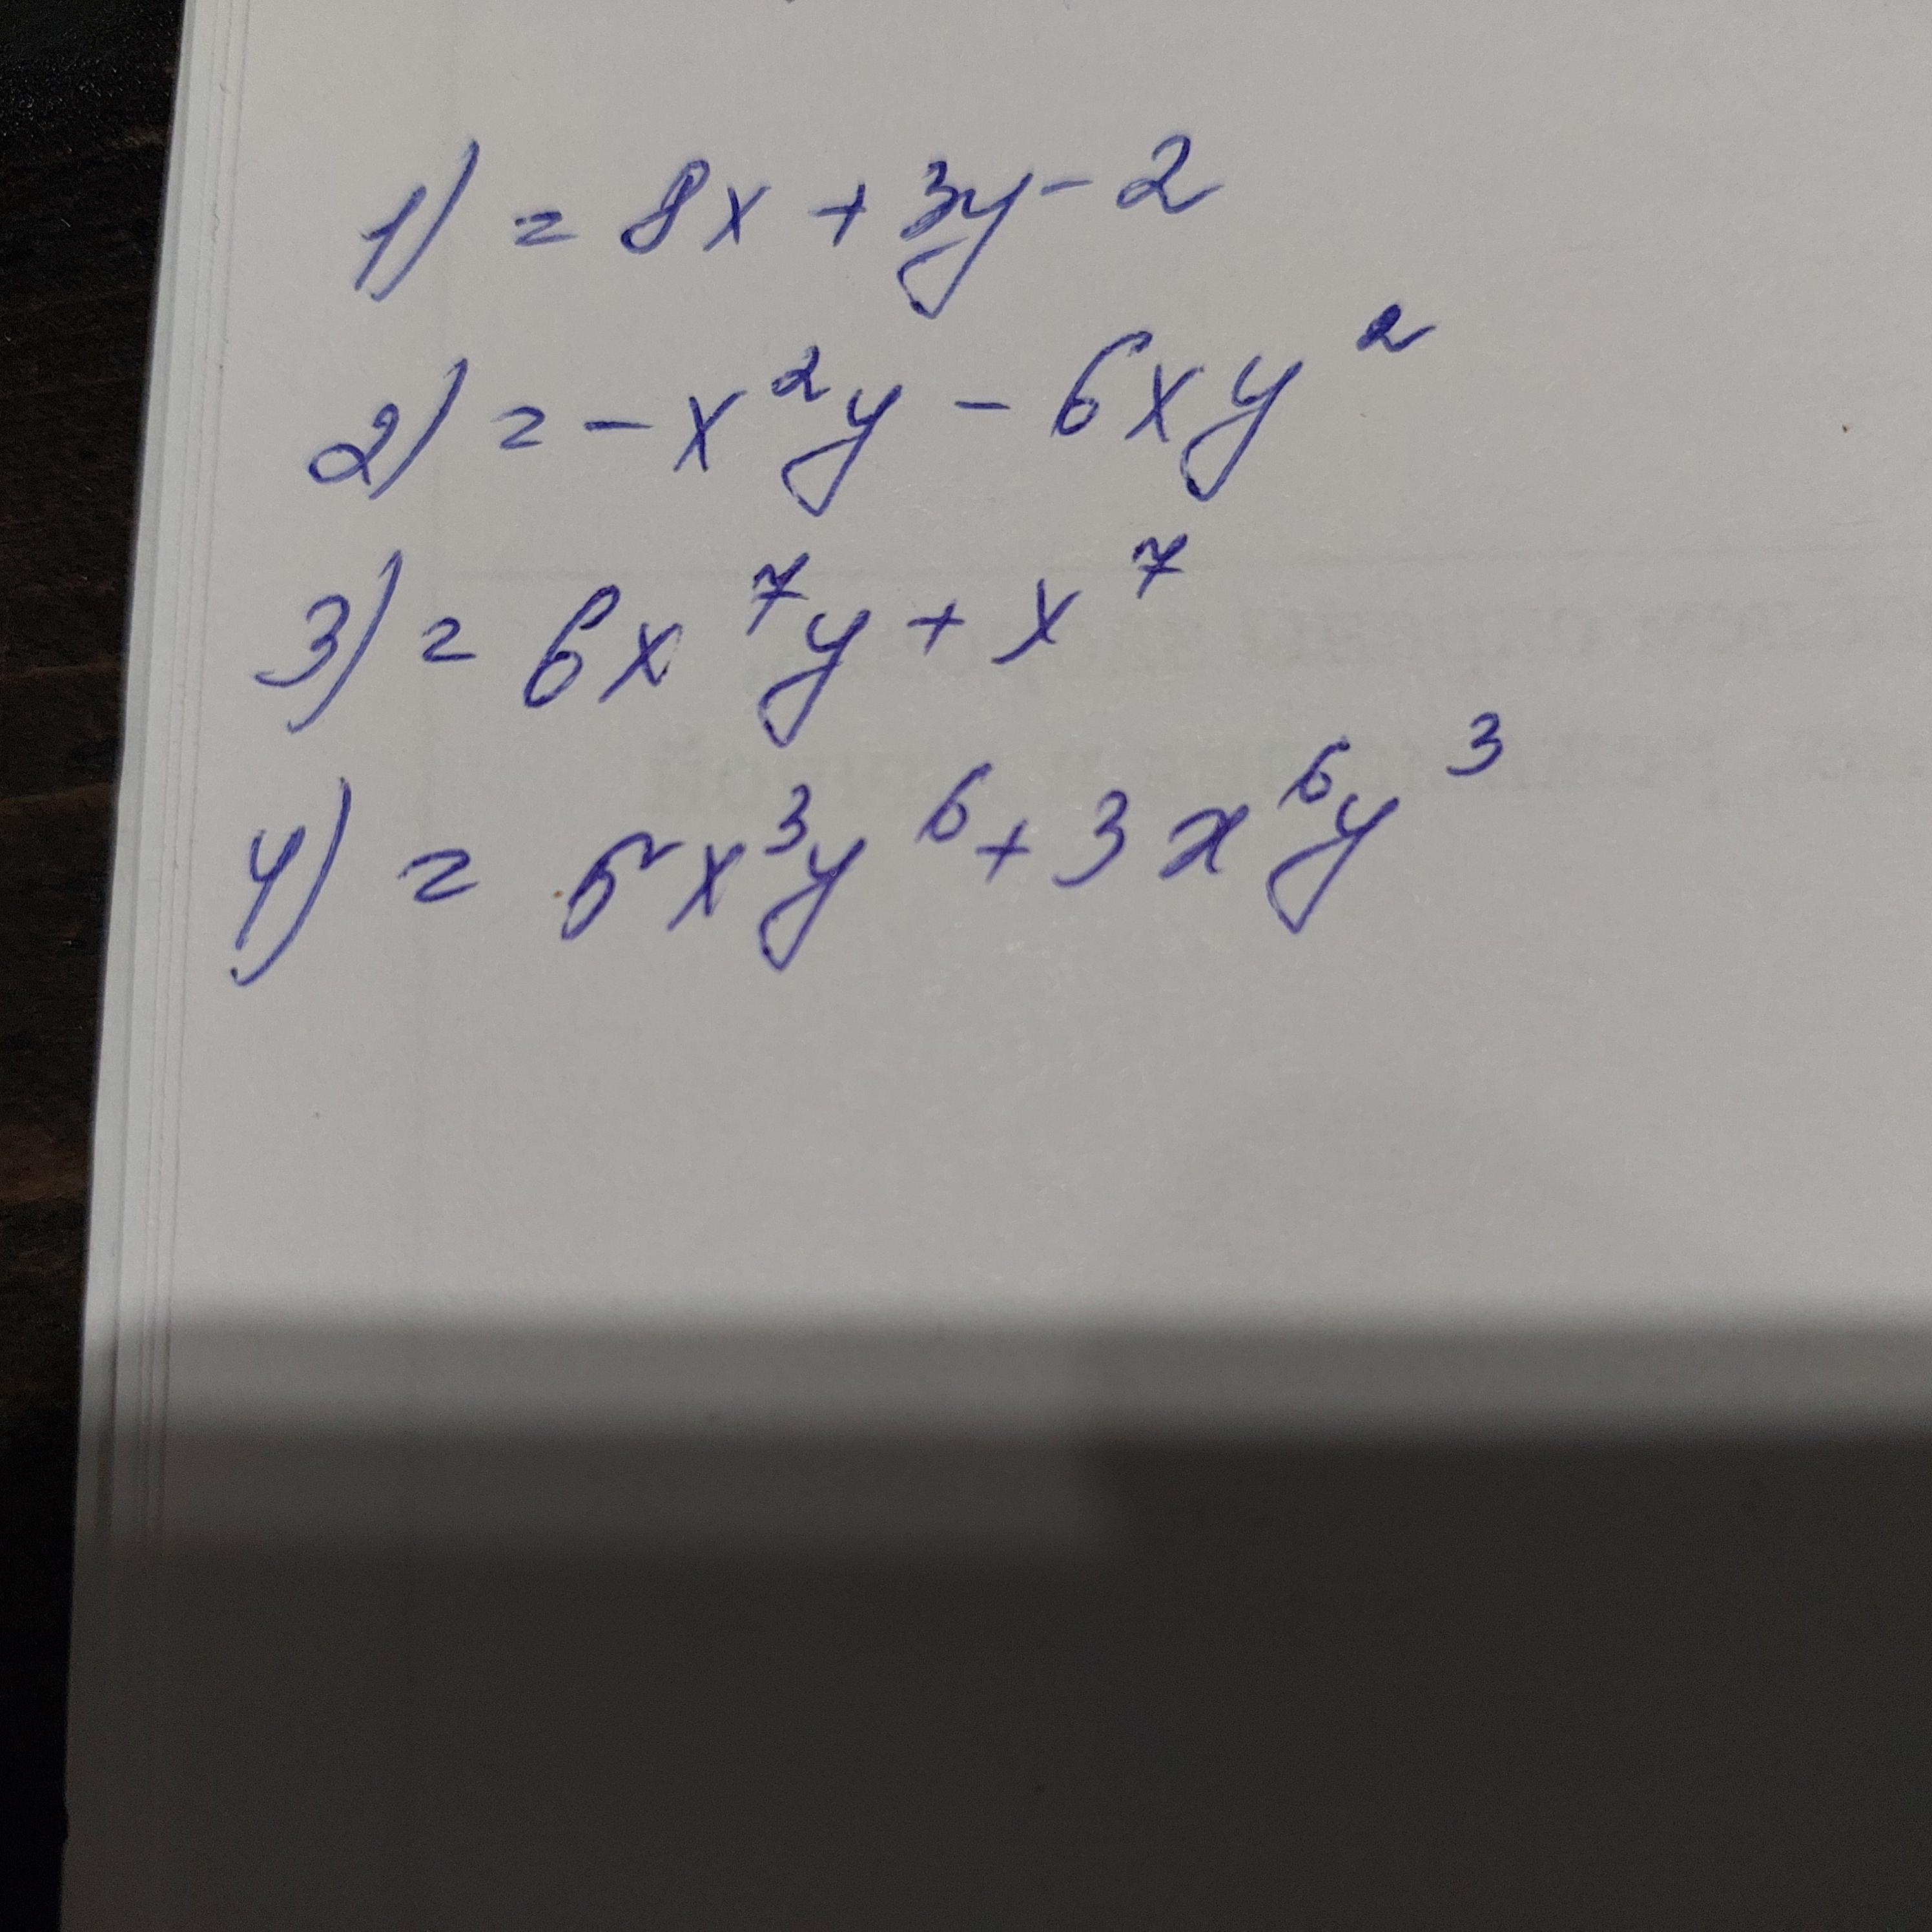 1) = 8x + 3y - 2
2) = - x²y - 6xy²
3) = 6x⁷y + x⁷
4) = 5x³y⁶ + 3x⁶y³